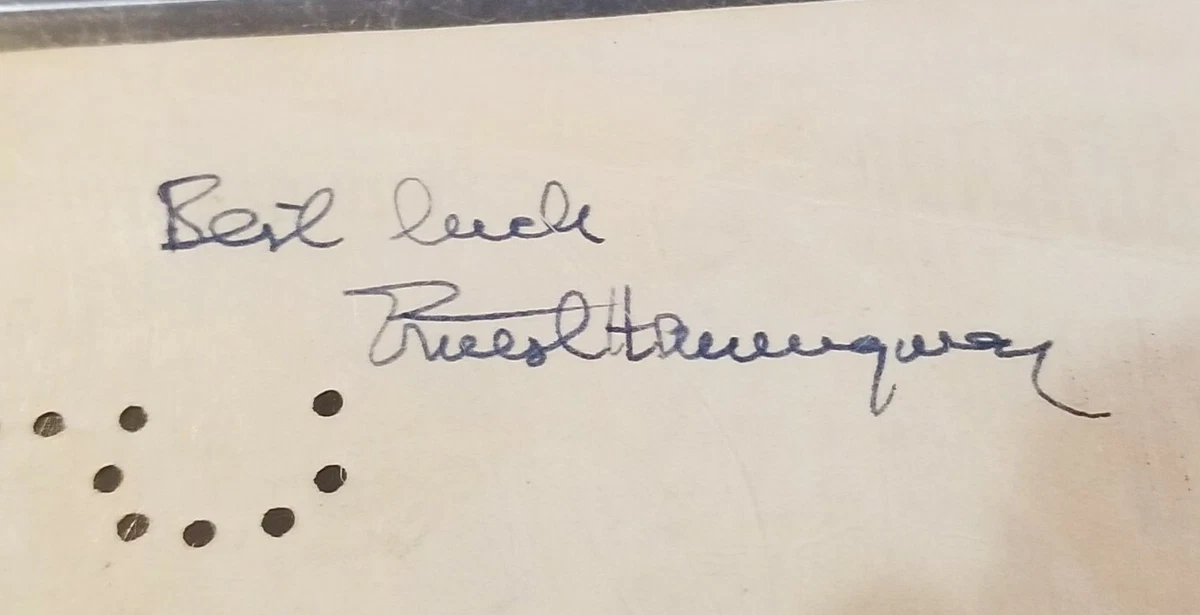 Best luck
Ernest Hemingway